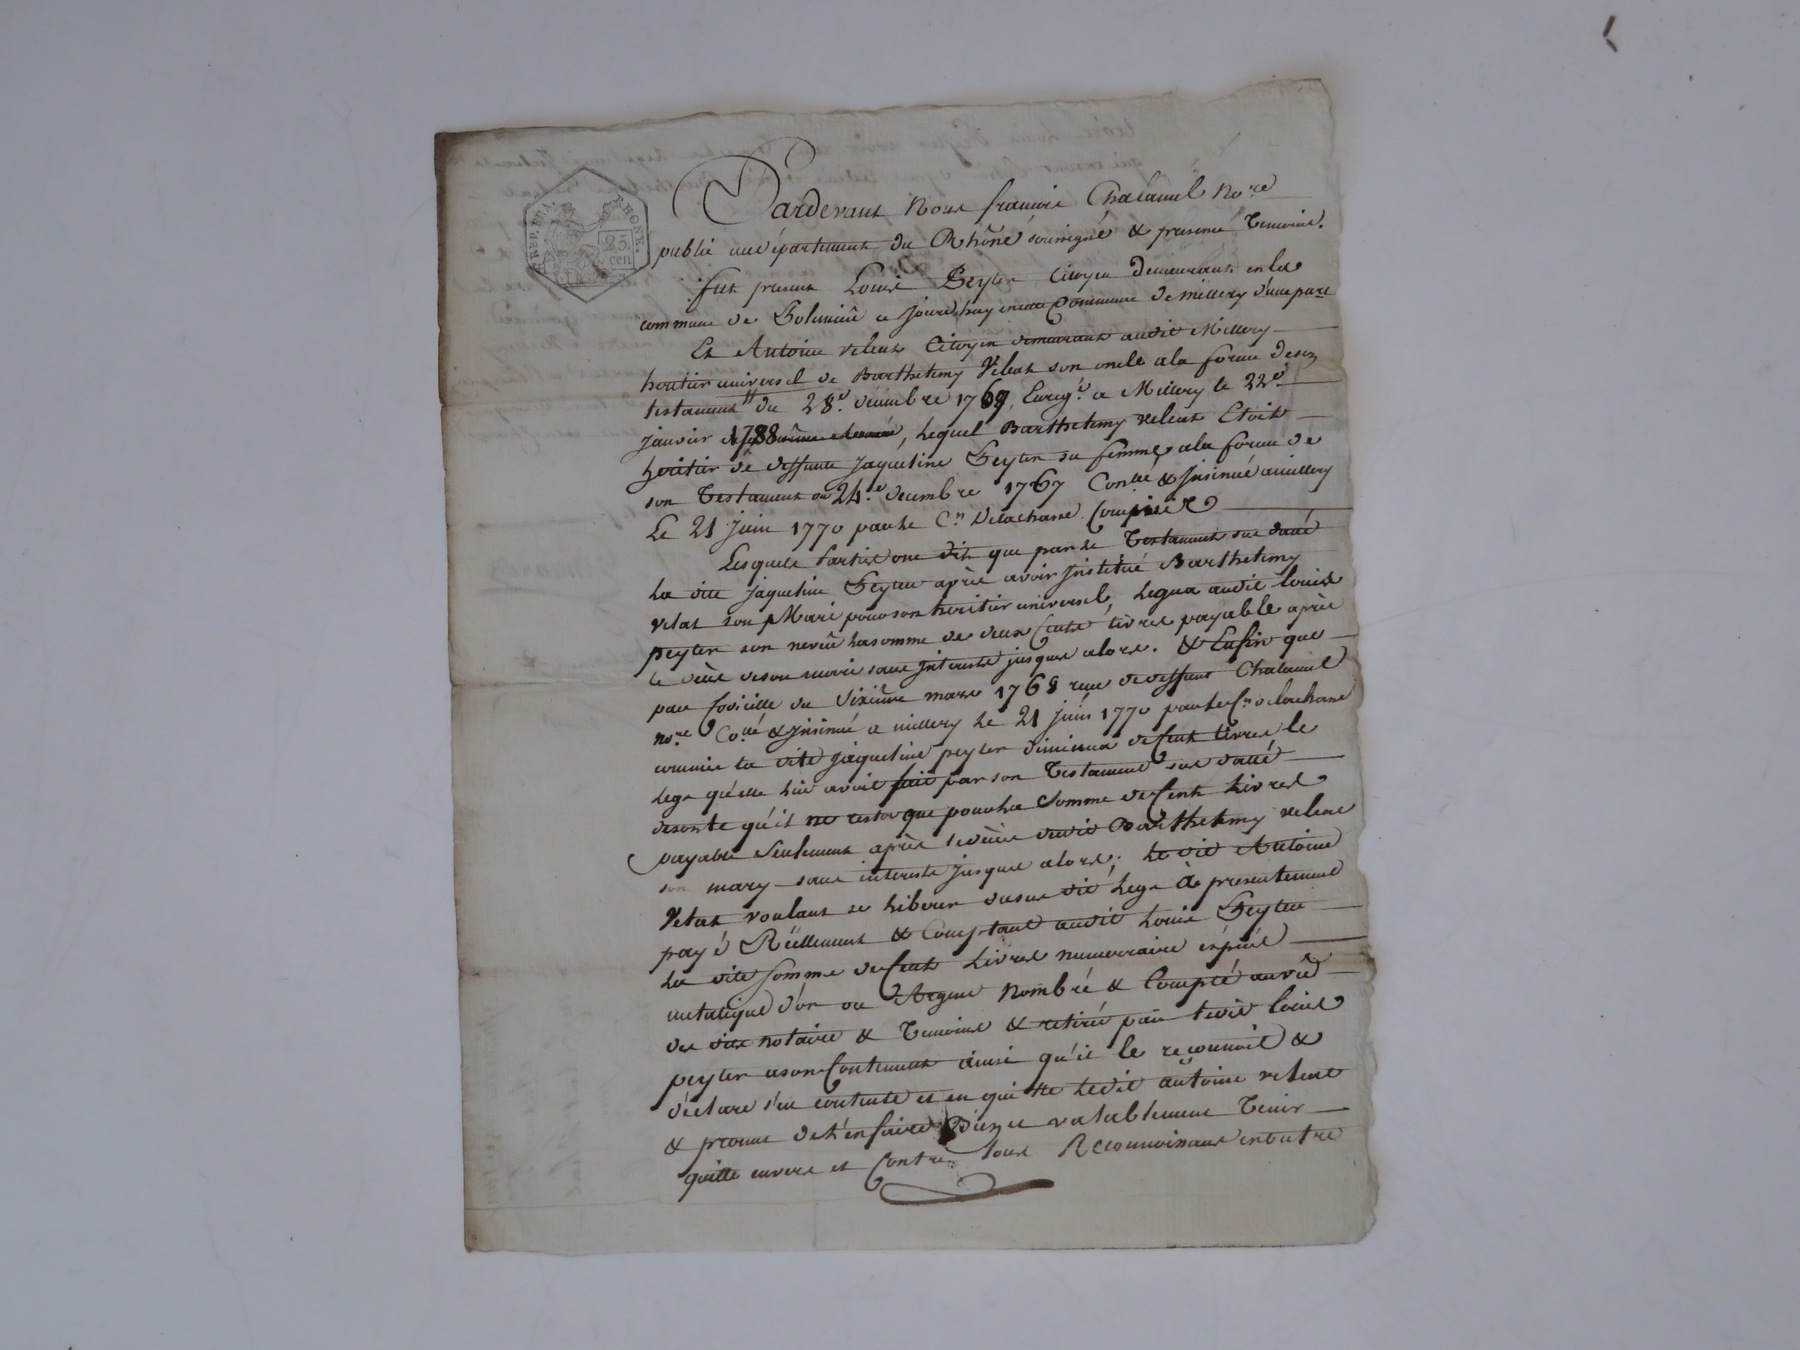 RÉP. FRA.
RHONE.
25
cen
Pardevant Nous françois Chalamel No.re
public au département du Rhône soussigné & presens Temoins.
fut present Louis Peyter Citoyen demeurant en la
commune de ce jourdhuy en cette Commune de millery d'une part
Et Antoine velat Citoyen demeurant audit Millery
heritier universel de Barthelemy Velat son oncle a la forme de son
testament du 28.e décembre 1769, Enreg.é a Millery le 22.e
janvier 1788, lequel Barthelemy velat Etoit
heritier de deffunte jaqueline Peyter sa femme a la forme de
son Testament du 24.e decembre 1767 Con.llé & Insinué a millery
Le 21 juin 1770 par le C.n Delachane Commis
Lesquels Parties ont dit que par le Testament sus datté
La dite jaqueline Peyter après avoir Institué Barthelemy
velat son Mari pour son heritier universel, Legua audit Louis
peyter son neveu la somme de deux Cents livres payable après
le décès de son mari sans Interests jusques alors. & Enfin que
par Codicille du Sixième mars 1768 reçu de deffunt Chalamel
no.re Co.llé & Insinué a millery le 21 juin 1770 par le C.n delachane
commis la dite jaqueline peyter diminua de Cent livres le
legs qu'elle lui avoit fait par son Testament sus datté
desorte qu'il ne reste que pour la Somme de Cent Livres
payable Seulement après le décès dudit Barthelemy velat
son mary sans interests jusques alors; le dit Antoine
Velat voulant se liberer du sus dit Legs a presentement
payé Réellement & Comptant audit Louis Peyter
La dite somme de Cent Livres numerraire espèces
metalique d'or ou Argent Nombré & Compté au vû
des dits notaire & Temoins & retiré par ledit Louis
peyter a son Contentement ainsi qu'il le reconnoit &
déclare s'en contente et en quitte ledit antoine velat
& promet de l'en faire Bien et valablement Tenir
quitte envers et Contre Tous Reconnoissant en outre